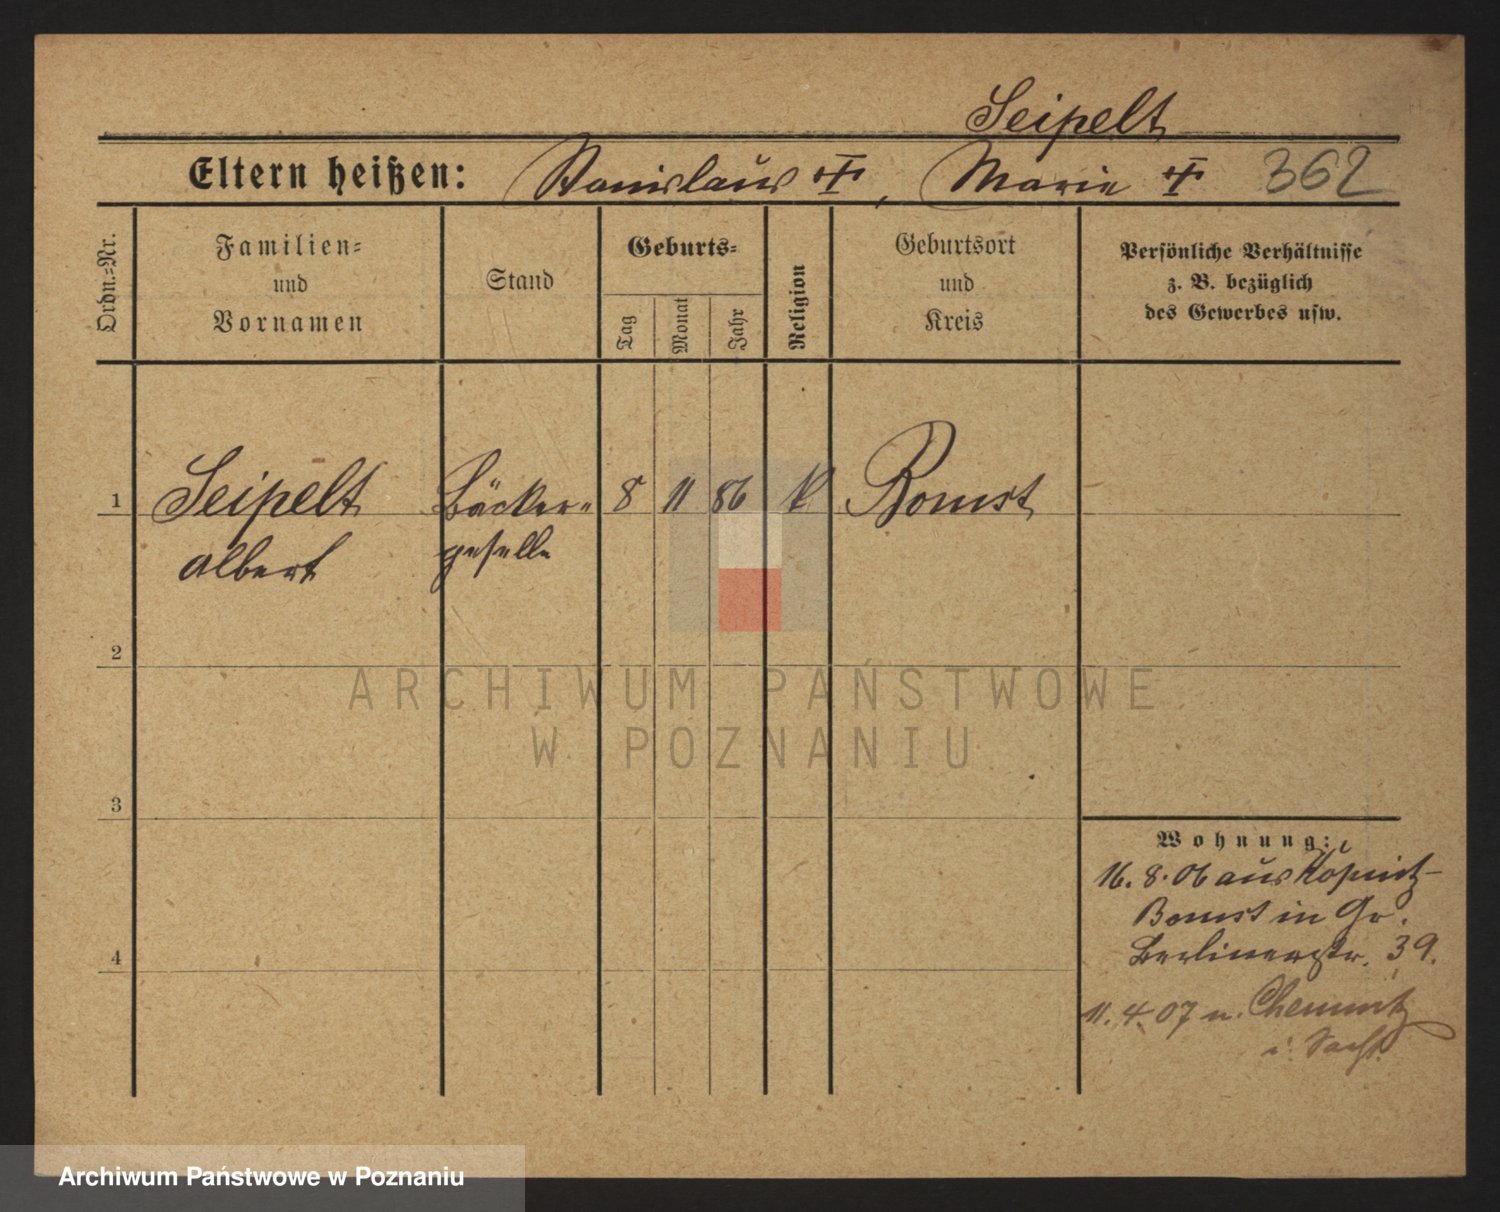 Seipelt
Eltern heißen: Stanislaus ✝, Marie ✝ 362
Ordn.=Nr.
Familien=
und
Vornamen
Stand
Geburts=
Tag
Monat
Jahr
Religion
Geburtsort
und
Kreis
Persönliche Verhältnisse
z. B. bezüglich
des Gewerbes usw.
1 Seipelt Bäcker= 8 11 86 k Bomst
Albert geselle
2
ARCHIWUM PAŃSTWOWE
W POZNANIU
3
Wohnung:
16. 8. 06 aus Köpnitz
Bomst in Gr.
Berlinerstr. 39.
4
11. 4. 07 n. Chemnitz
i. Sachs.
Archiwum Państwowe w Poznaniu